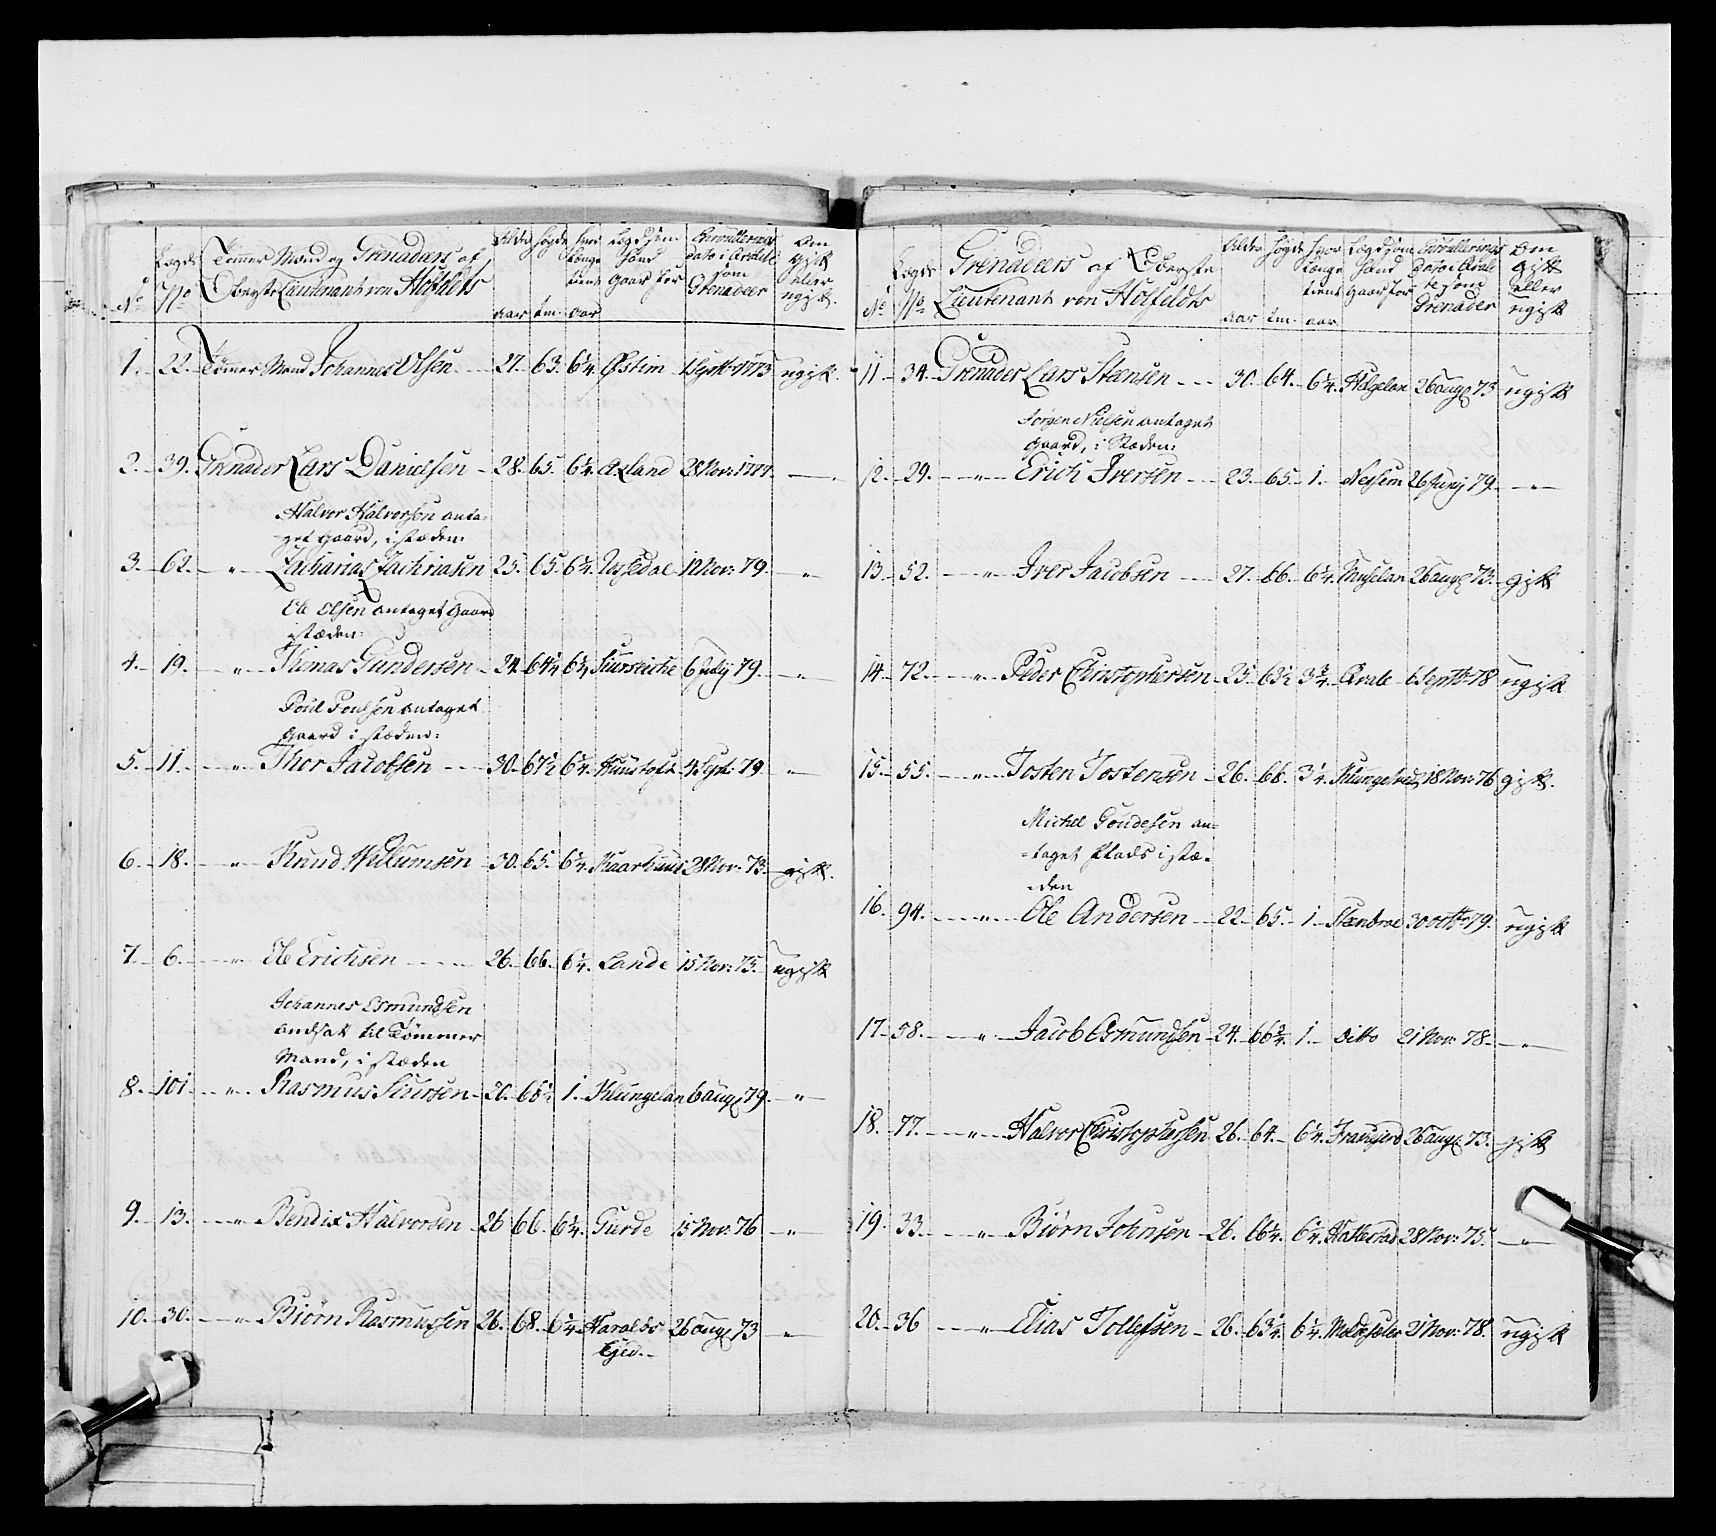 No
Lægds No
Tømmer Mænd og Grenaders af
Oberste Lieutenant von Holfeldts
Alder
aar
Høgde
tm.
hvor længe tient
aar
Lægd som
hand
staar for
dato i
som
Grenadeer
Om
gift
eller
ugift.
1. 22. Tømer Mand Johannes Olsen 27. 63. 6¼. Østim 1 Sept: 1773 ugift.
2. 39. Grenader Lars Danielsen 28. 65. 6¼. Axland 28 Nov: 1774. —
Halvor Halvorsen anta-
get gaard, i stæden:
3. 62. " Zacharias Zachriasen 25. 65. 6¼. 12 Nov: 79. "
Ole Olsen antaget Gaard
i stæden:
4. 19. " Thomas Gundersen 24. 64½ 6¼ 6 July 79. "
Poul Poulsen antaget
Gaard i stæden:
5. 11. " Thor Jacobsen 30. 67½ 6¼ 4 Sept: 79. "
6. 18. " Knud Willumsen 30. 65. 6¼. 28 Nov: 73. gift.
7. 6. " Ole Erichsen 26. 66. 6¼. Lande 15 Nov: 75. ugift
Johannes Osmundsen
andsat til Tømmer
Mand, i stæden
8. 101 " Rasmus Siursen 20. 66½ 1. Klungelan 6 aug 79. "
9. 13. " Bendix Halvorsen 26 66. 6¼. Gurde 15 Nov: 76 "
10. 30. " Biørn Rasmussen 26. 68. 6¼. Haralds 26 aug 73 "
Ejed.
No
Lægds No
Grenadeers af Oberste
Lieutenant von Holfeldts
Alder
aar
Høgde
tm.
hvor
længe
tient
aar
Lægd som
hand
staar for
som
Grenader
Om
gift
eller
ugift
11. 34. Grenader Lars Steensen 30. 64. 6¼. Helgelan 26 aug 73 ugift
Jørgen Nielsen antaget
gaard, i Stæden:
12. 29. " Erich Iversen 23. 65. 1. Nessem 26 Junj 79. "
13. 52. " Iver Jacobsen 27. 66. 6¼. Muselan 26 aug 73. gift
14. 72. " Peder Christophersen 25. 63½ 3¾. Qvale 6 Septb: 78 ugift
15. 55. " Tosten Tostensen 26. 66. 3¼. 18 Nov: 76 gift.
Michel Goudesen an-
-taget Plads i stæ-
-den
16. 94. " Ole Andersen 22. 65. 1. Steenbroe 30 octb: 79. ugift
17. 58. " Jacob Osmundsen 24. 66¾ 1. ditto 21 Nov: 78. "
18. 77. " Halvor Christophersen 26. 64. 6¼. 26 aug 73. gift
19. 33. " Biørn Johnsen 26. 66¼. 6¼. Hattestad 28 Nov: 75. "
20. 36 " Elias Tollefsen 26. 63¼. 6¼. 21 Nov: 78. ugift